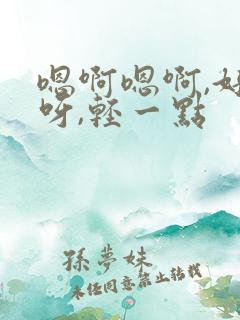 嗯啊嗯啊,好
呀,輕一點
孫夢妹
未經同意禁止轉載